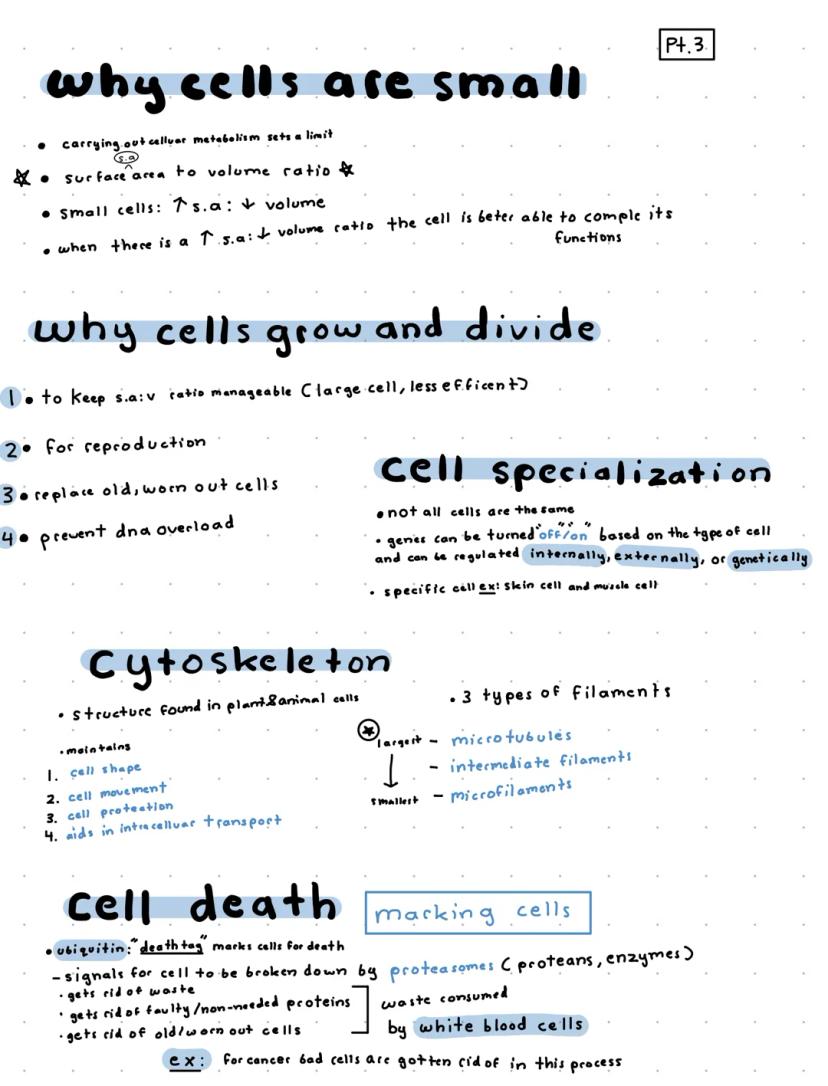 Pt.3
why cells are small
• carrying out celluar metabolism sets a limit
s.a
☆ • surface area to volume ratio ☆
• small cells: ↑ s.a: ↓ volume
• when there is a ↑ s.a:↓ volume ratio the cell is beter able to comple its
functions
why cells grow and divide
1 • to keep s.a:v ratio manageable (large cell, less efficent)
2 • for reproduction
3 • replace old, worn out cells
4 • prevent dna overload
cell specialization
• not all cells are the same
• genes can be turned "off"/"on" based on the type of cell
and can be regulated internally, externally, or genetically
• specific cell ex: skin cell and muscle cell
cytoskeleton
• structure found in plant & animal cells
• maintains
1. cell shape
2. cell movement
3. cell protection
4. aids in intracelluar transport
• 3 types of filaments
☆ largest - microtubules
↓ - intermediate filaments
smallest - microfilaments
cell death
marking cells
• ubiquitin: "death tag" marks cells for death
- signals for cell to be broken down by proteasomes (proteans, enzymes)
• gets rid of waste
• gets rid of faulty/non-needed proteins
• gets rid of old/worn out cells
waste consumed
by white blood cells
ex: for cancer bad cells are gotten rid of in this process